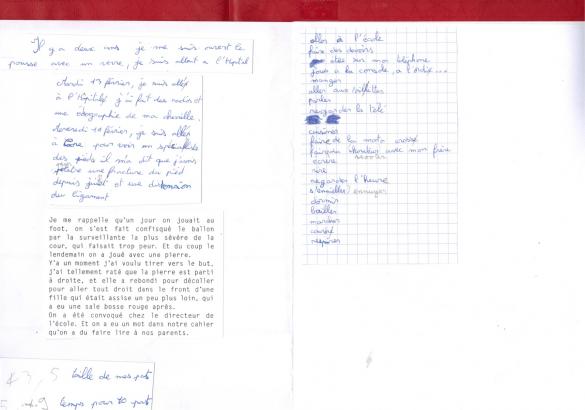 Il y a deux ans je me suis ouvert le
pousse avec un verre, je suis allait a l'Hôpital
Mardi 17 février, je suis allé
à l'Hôpital j'ai fait des radios et
une échographie de ma cheville.
18 février, je suis allé
à pour voir un spécialiste
des pieds il m'a dit que j'avais
une fracture du pied
depuis et une distension
du ligament
Je me rappelle qu'un jour on jouait au
foot, on s'est fait confisqué le ballon
par la surveillante la plus sévère de la
cour, qui faisait trop peur. Et du coup le
lendemain on a joué avec une pierre.
Y'a un moment j'ai voulu tirer vers le but,
j'ai tellement raté que la pierre est parti
à droite, et elle a rebondi pour décoller
pour aller tout droit dans le front d'une
fille qui était assise un peu plus loin, qui
a eu une sale bosse rouge après.
On a été convoqué chez le directeur de
l'école. Et on a eu un mot dans notre cahier
qu'on a du faire lire à nos parents.
43,5 taille de mes
temps pour
aller à l'école
faire des devoirs
être sur mon téléphone
jouer à la console, a l'ordi...
manger
aller aux toilettes
parler
regarder la télé
cuisiner
faire de la moto cross
avec mon frère
écrire
rire
regarder l'heure
s'ennuyer
dormir
bailler
marcher
courir
respirer